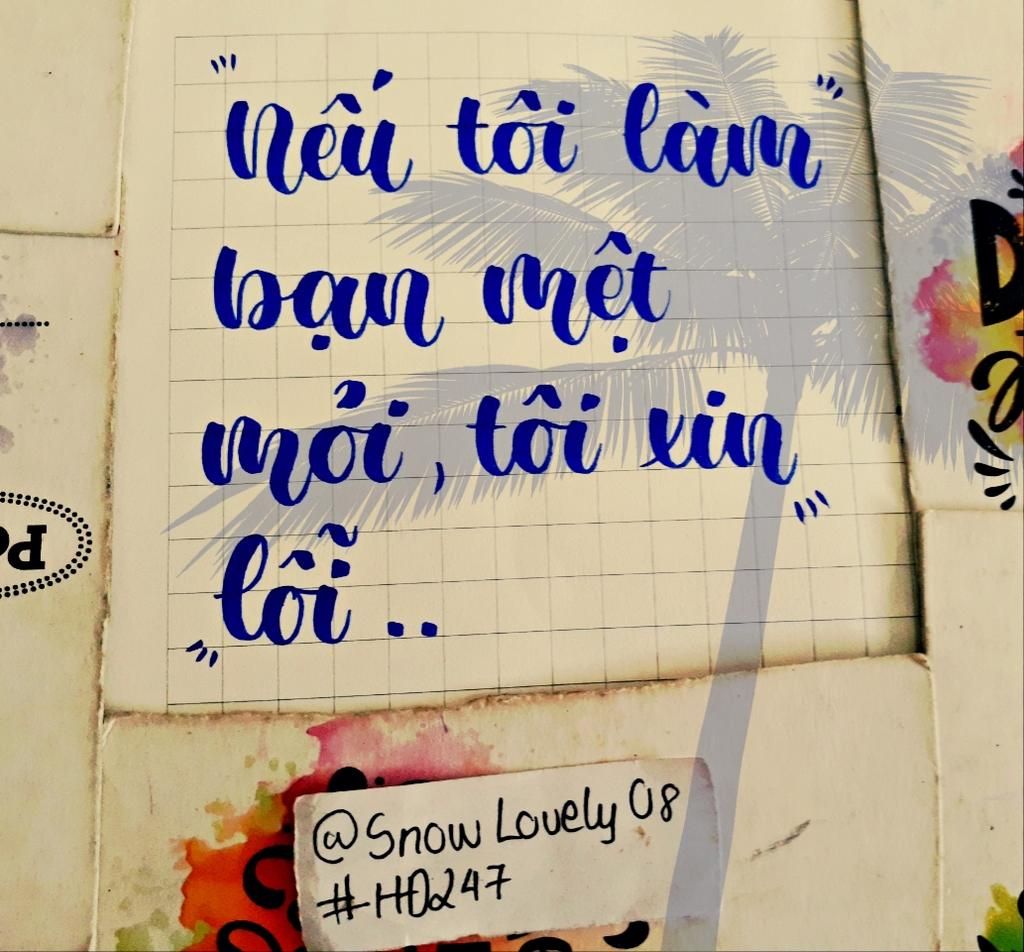 "Nếu tôi làm
bạn mệt
mỏi, tôi xin
lỗi..
@Snow Lovely 08
#HD247